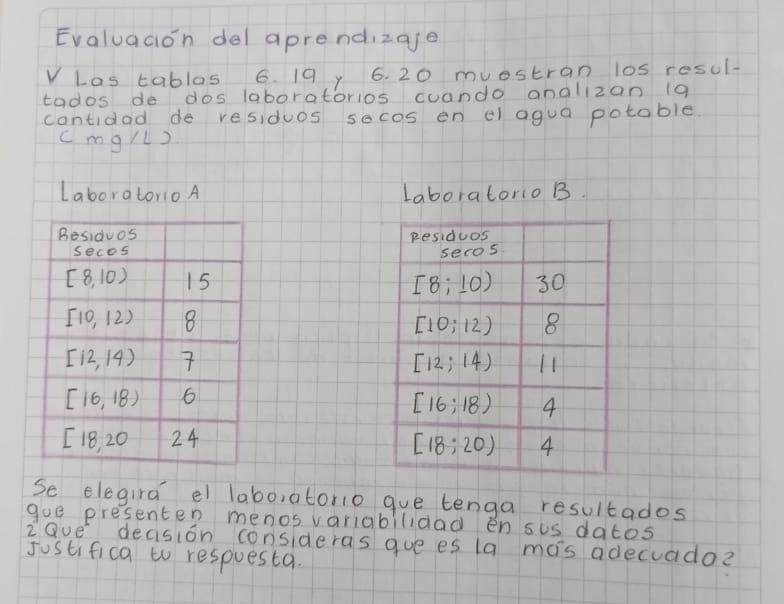 Evaluación del aprendizaje
V Las tablas 6.19 y 6.20 muestran los resul-
tados de dos laboratorios cuando analizan la
cantidad de residuos secos en el agua potable.
(mg/L).
Laboratorio A
Residuos
secos
[8,10) 15
[10,12) 8
[12,14) 7
[16,18) 6
[18,20 24
Laboratorio B.
Residuos
secos.
[8;10) 30
[10;12) 8
[12;14) 11
[16;18) 4
[18;20) 4
Se elegirá el laboratorio que tenga resultados
que presenten menos variabilidad en sus datos
¿Que decisión consideras que es la más adecuada?
Justifica tu respuesta.